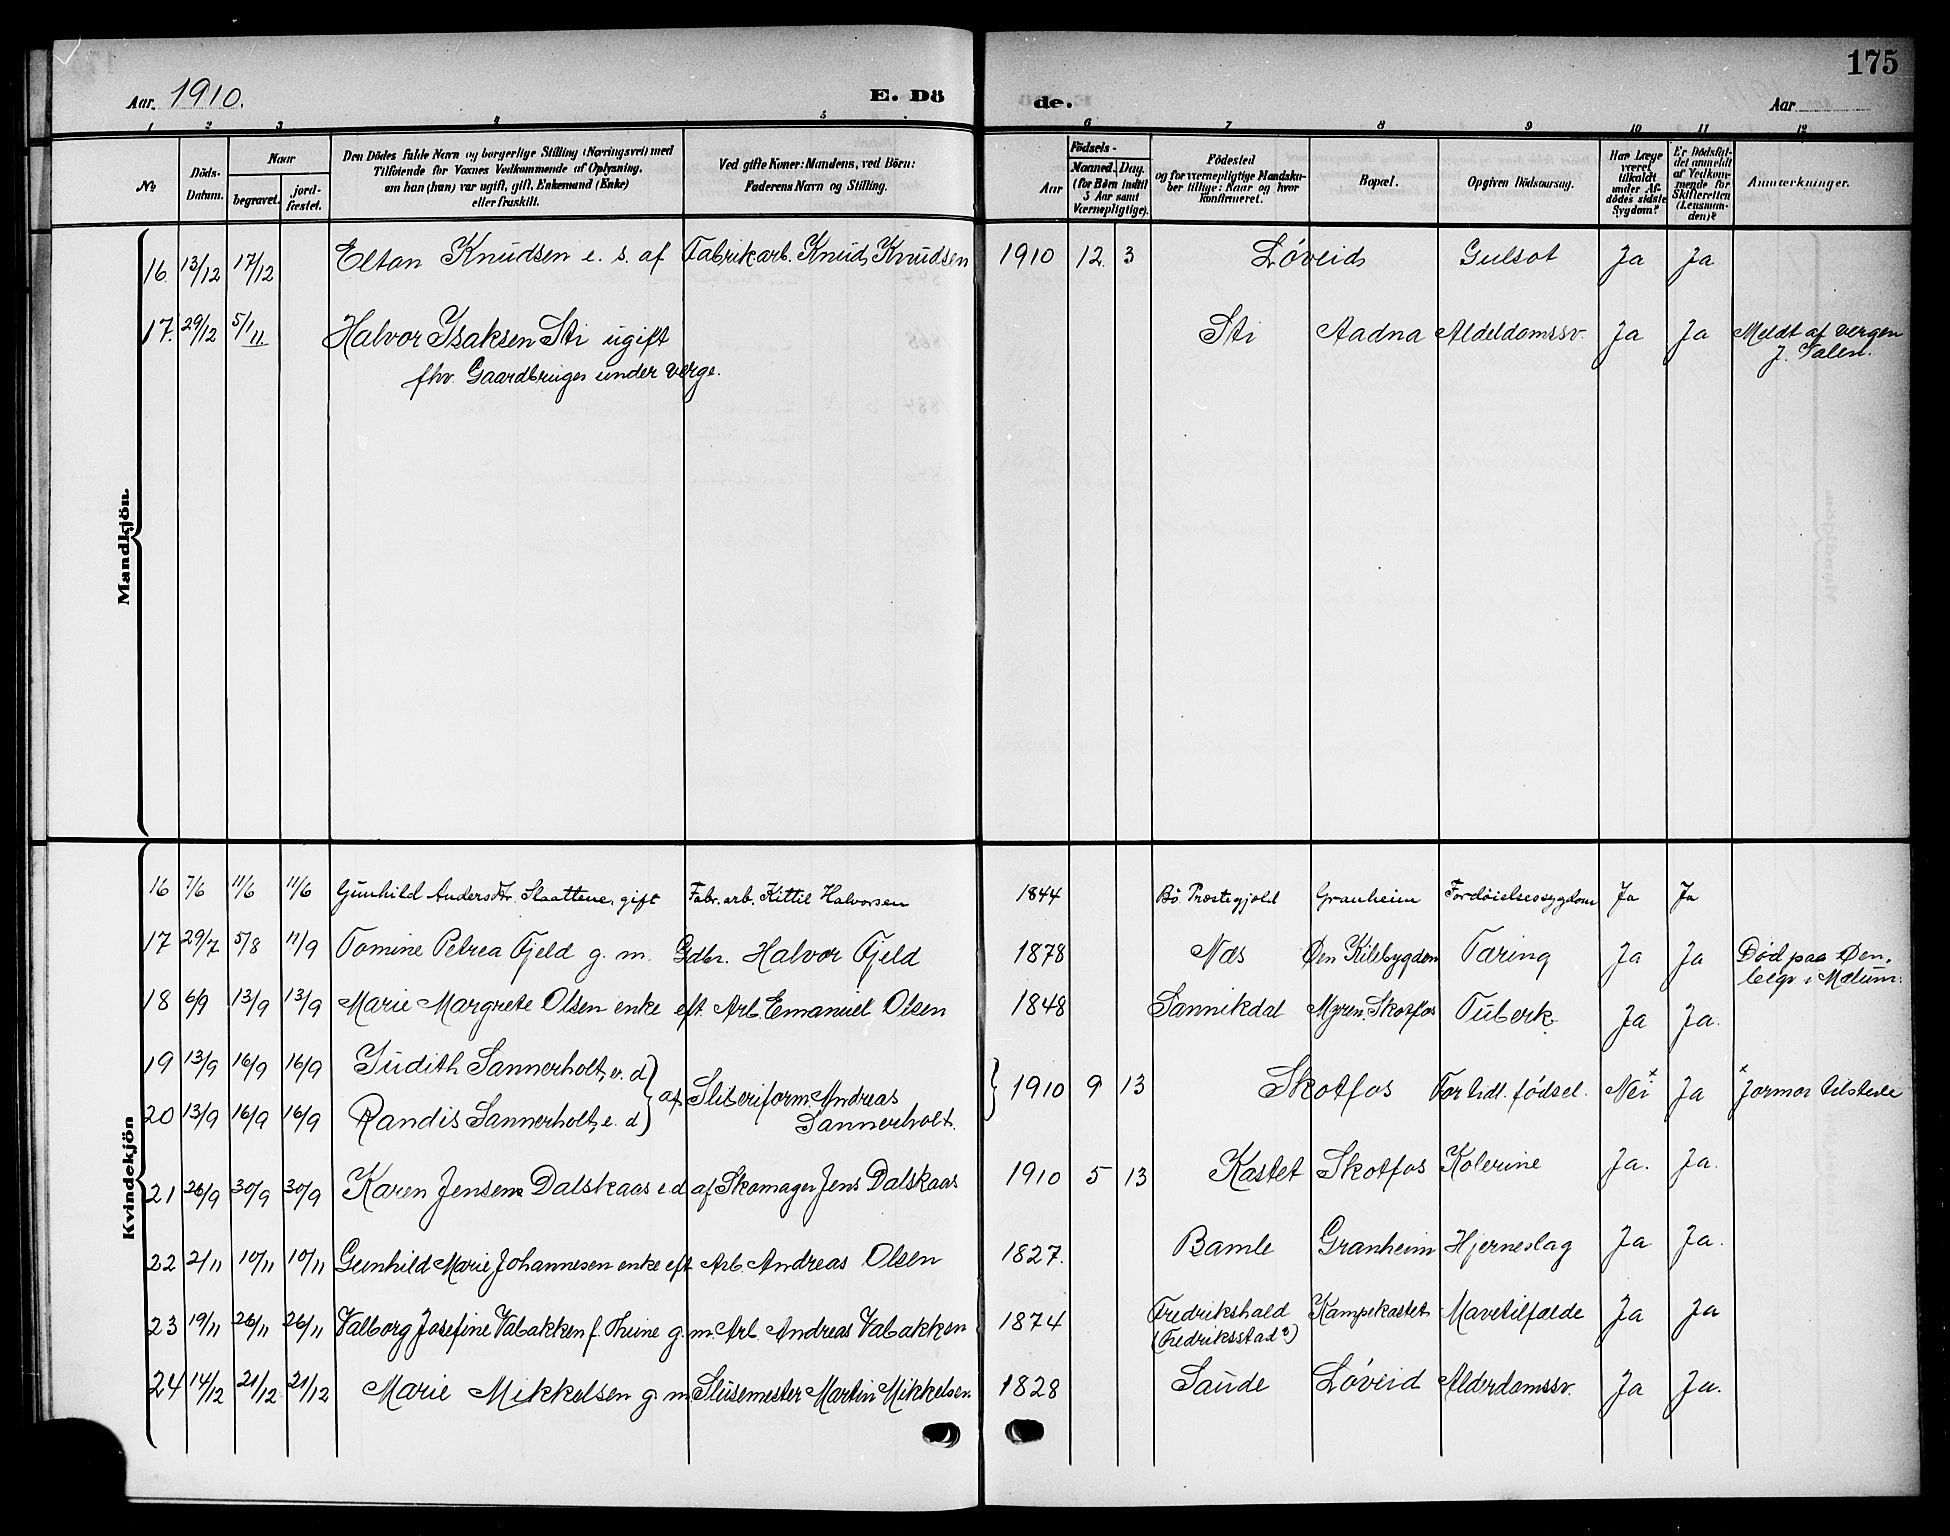 175
Aar. 1910. E. Dö de. Aar
1 2 3 4 5 6 7 8 9 10 11 12
No
Döds-Datum.
Naar
begravet.
jord-fæstet.
Den Dödes fulde Navn og borgerlige Stilling (Næringsvei) med
Tilföiende for Voxnes Vedkommende af Oplysning,
om han (hun) var ugift, gift, Enkemand (Enke)
eller fraskilt.
Ved gifte Koner: Mandens, ved Börn:
Faderens Navn og Stilling.
Födsels-
Aar
Maaned. Dag.
(for Börn indtil
5 Aar samt
Værnepligtige).
Födested
og for værnepligtige Mandska-
ber tillige: Naar og hvor
konfirmeret.
Bopæl.
Opgiven Dödsaarsag.
Har Læge
været
tilkaldt
under Af-
dödes sidste
Sygdom?
Er Dödsfal-
det anmeldt
af Vedkom-
mende for
Skifteretten
(Lensman-
den)?
Anmærkninger.
Mandkjön.
16 13/12 17/12 Elton Knudsen e. s. af Fabrikarb. Knud Knudsen 1910 12. 3 Lóveid Gulsot Ja Ja
17. 29/12 5/1 11. Halvor Isaksen Sti ugift Sti Aadna Aldeldomssv. Ja Ja Meldt af vergen
fhv. Gaardbruger under verge. J. Valen.
Kvindekjön
16 7/6 11/6 11/6 Gunhild Andersdtr. Slaattene, gift Fabr. arb. Kittil Halvorsen 1844 Bö Præstegjeld Granheim Fordöielsessygdom Ja Ja
17 29/7 5/8 11/9 Tomine Petrea Fjeld g. m. Gdbr. Halvor Fjeld 1878 Næs Den Kilebygden Tæring Ja Ja Död paa Den,
belgv i Melum.
18 6/9 13/9 13/9 Marie Margrete Olsen enke eft. Arb. Emanuel Olsen 1848 Sannikdal Myren. Skotfos Tuberk. Ja Ja.
19 13/9 16/9 16/9 Judith Sannerholt, e. d } af Sliberiform. Andreas } 1910 9 13 Skotfos For tidl. födsel. Nei x Ja x Jormor tilstede
20 13/9 16/9 16/9 Randis Sannerholt, e. d Sannerholt.
21 26/9 30/9 30/9 Karen Jensene Dalskaas e. d af Skomager Jens Dalskaas 1910 5 13 Kastet Skotfos Kolerine Ja. Ja.
22 2/11 10/11 10/11 Gunhild Marie Johannesen enke eft Arb. Andreas Olsen 1827. Bamle Granheim Hjerneslag Ja Ja.
23 19/11 26/11 26/11 Valborg Josefine Vabakken f. Thine g. m. Arb. Andreas Vabakken 1874 Fredrikshald Kampekastet Mavetilfælde Ja Ja
(Fredriksstad?)
24 14/12 21/12 21/12 Marie Mikkelsen g. m Slusemester Martin Mikkelsen 1828 Saude Lóveid Alderdomssv. Ja Ja.